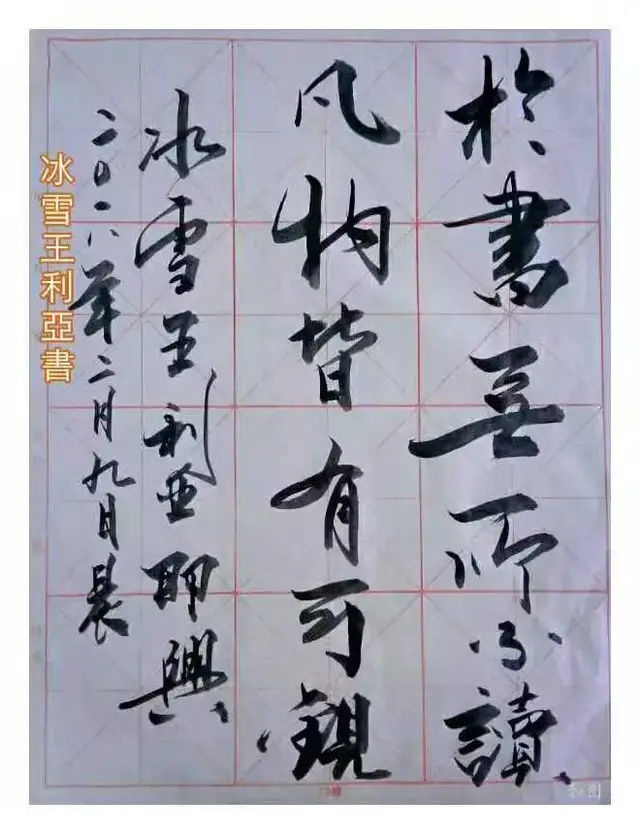 於書無所不讀
凡物皆有可觀
冰雪王利亞即興
二〇一八年二月九日晨
冰雪王利亞書